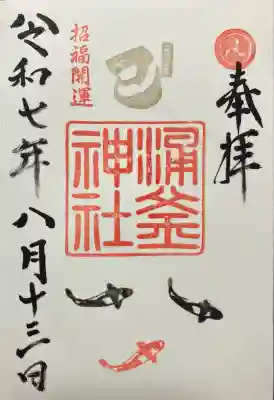 奉拝
涌釜
神社
招福開運
令和七年八月十三日